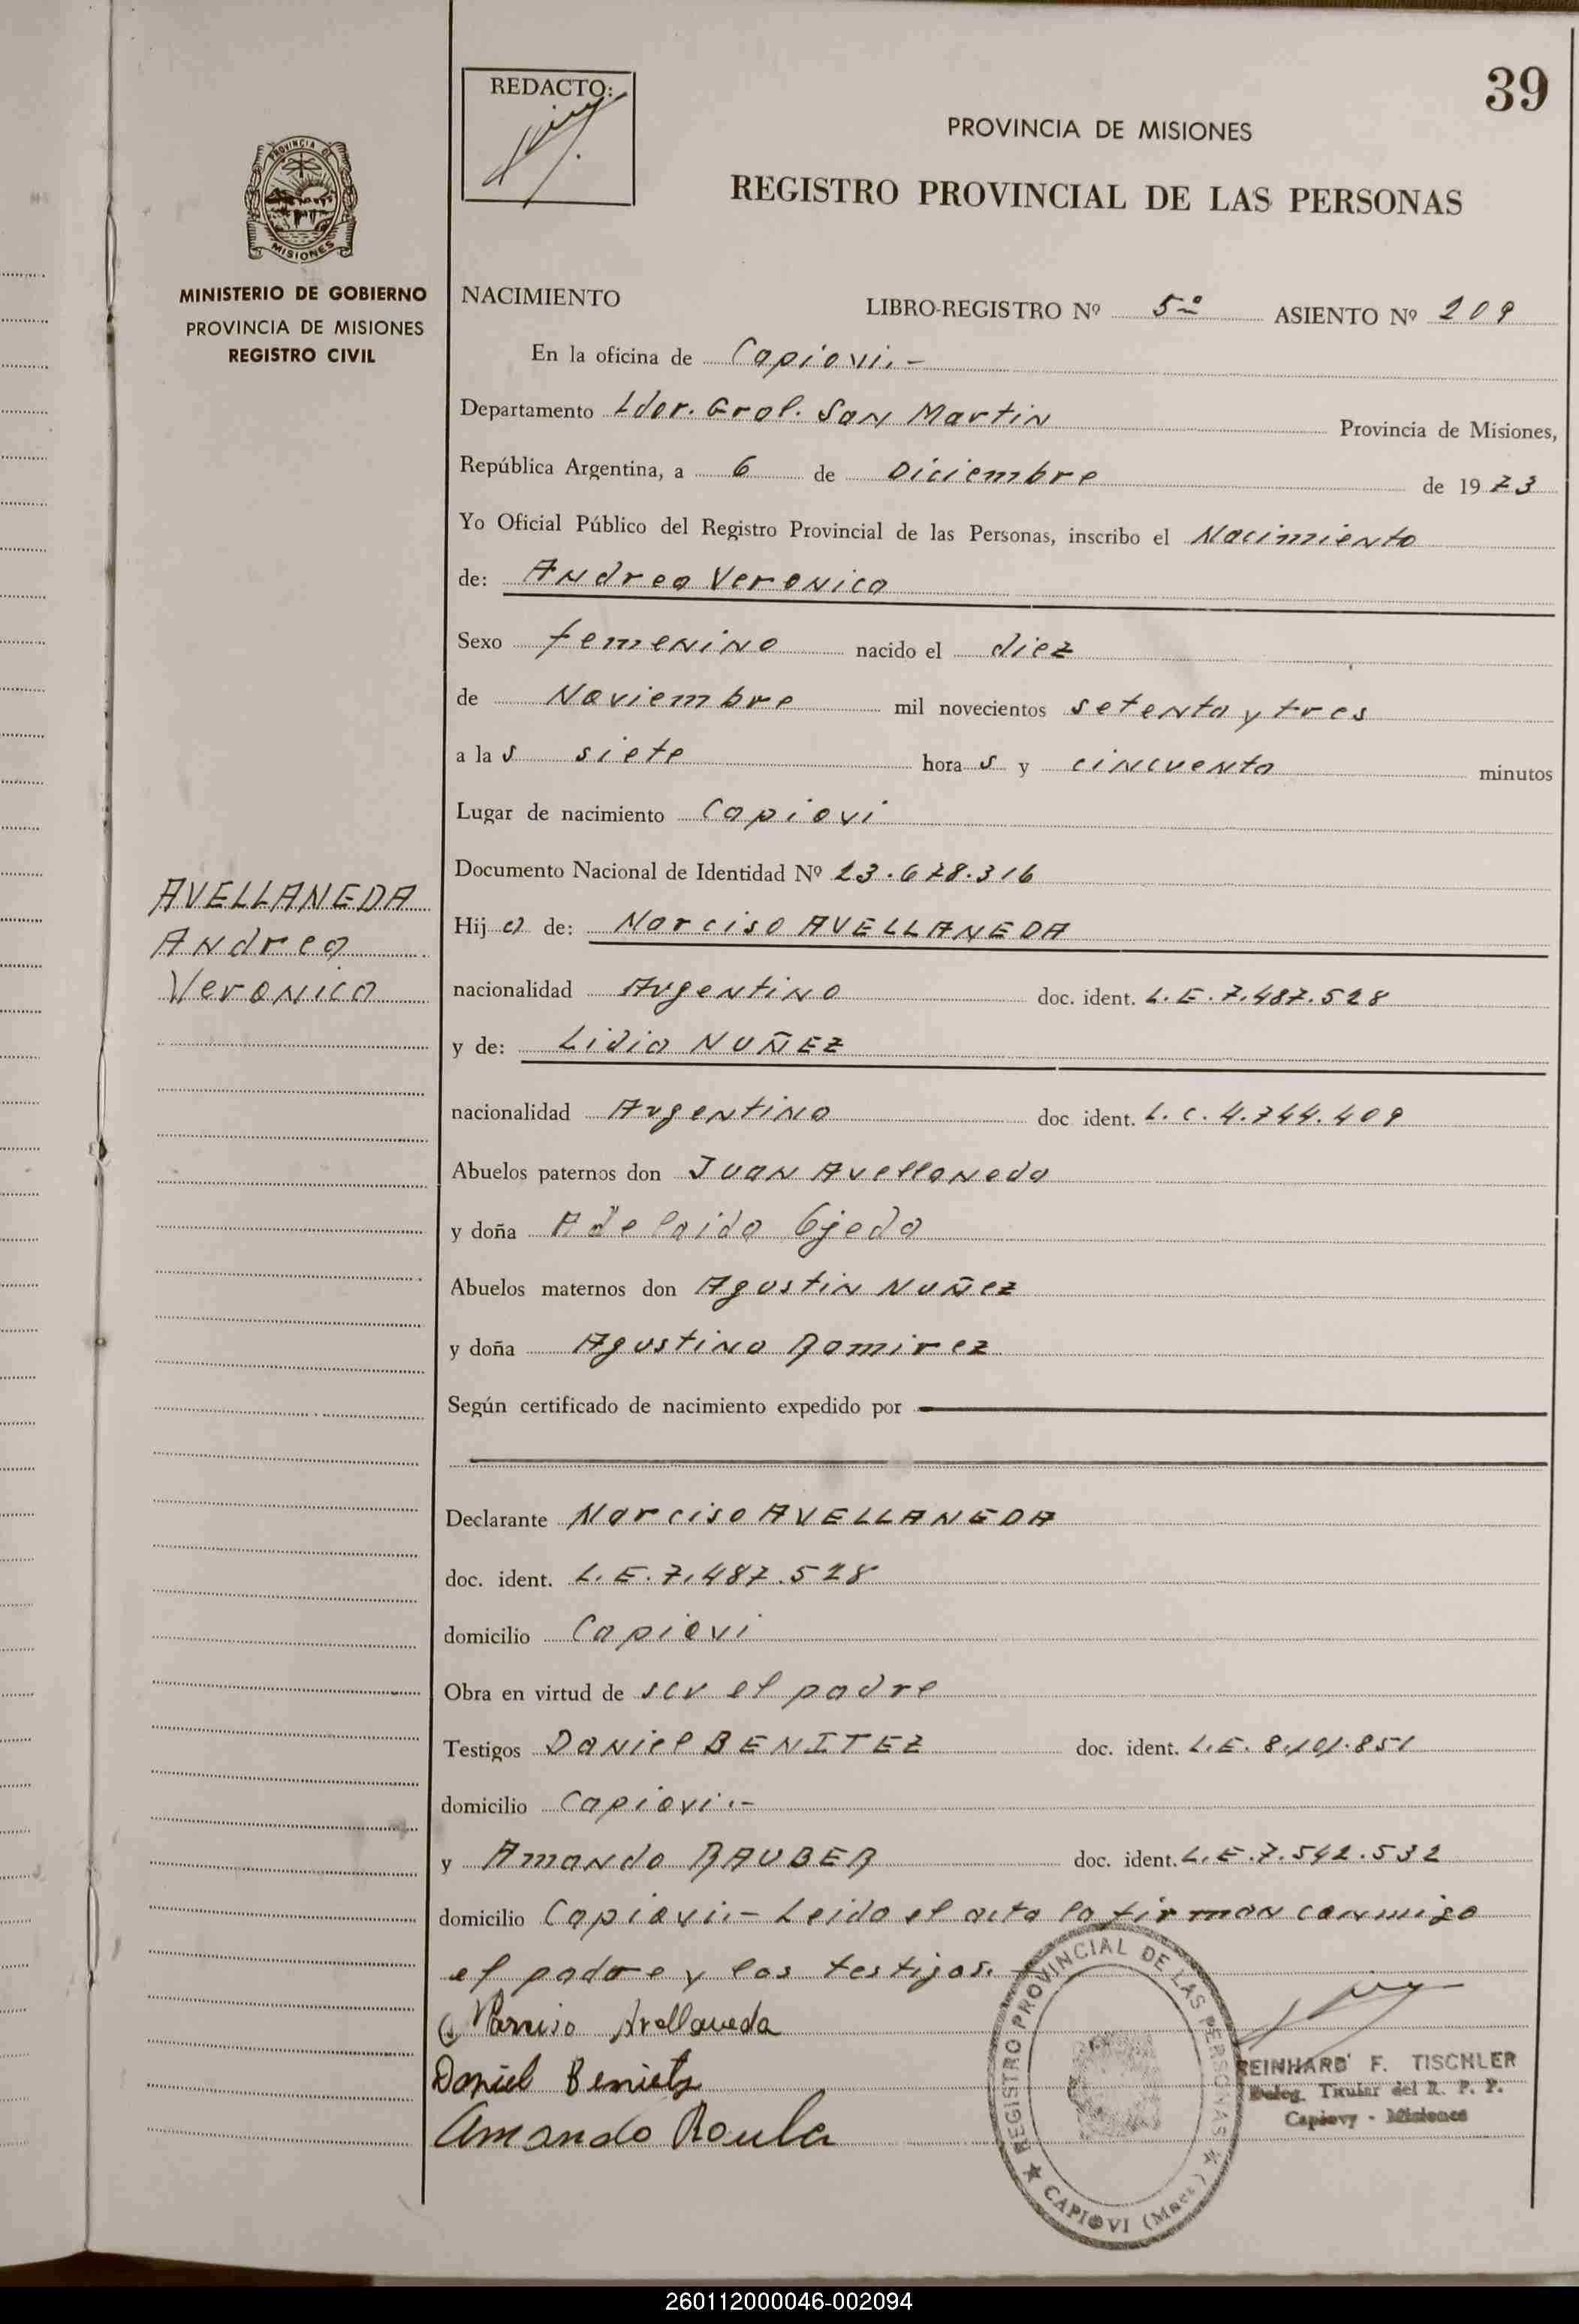 39
REDACTO:
PROVINCIA DE MISIONES
REGISTRO PROVINCIAL DE LAS PERSONAS
PROVINCIA DE
MISIONES
MINISTERIO DE GOBIERNO
PROVINCIA DE MISIONES
REGISTRO CIVIL
NACIMIENTO LIBRO-REGISTRO Nº 5º ASIENTO Nº 209
En la oficina de Capiovi.-
Departamento Ldor. Gral. San Martin Provincia de Misiones,
República Argentina, a 6 de Diciembre de 1973
Yo Oficial Público del Registro Provincial de las Personas, inscribo el Nacimiento
de: Andrea Veronica
Sexo femenino nacido el diez
de Noviembre mil novecientos setenta y tres
a las siete horas y cincuenta minutos
Lugar de nacimiento Capiovi
Documento Nacional de Identidad Nº 23.678.316
AVELLANEDA
Andrea
Veronica
Hija de: Narciso AVELLANEDA
nacionalidad Argentino doc. ident. L.E. 7.487.528
y de: Lidia NUÑEZ
nacionalidad Argentina doc ident. L.C. 4.744.409
Abuelos paternos don Juan Avellaneda
y doña Adelaida Ojeda
Abuelos maternos don Agustin Nuñez
y doña Agustina Ramirez
Según certificado de nacimiento expedido por
Declarante Narciso AVELLANEDA
doc. ident. L.E. 7.487.528
domicilio Capiovi
Obra en virtud de ser el padre
Testigos Daniel BENITEZ doc. ident. L.E. 8.101.851
domicilio Capiovi.-
y Amando RAUBER doc. ident. L.E. 7.542.532
domicilio Capiovi.- Leida el acta la firman conmigo
el padre y los testigos.
Narciso Avellaneda
Daniel Benietz
Amando
REGISTRO PROVINCIAL DE LAS PERSONAS
CAPIOVI (Mnes.)
REINHARD F. TISCHLER
Deleg. Titular del R. P. P.
Capiovy - Misiones
260112000046-002094